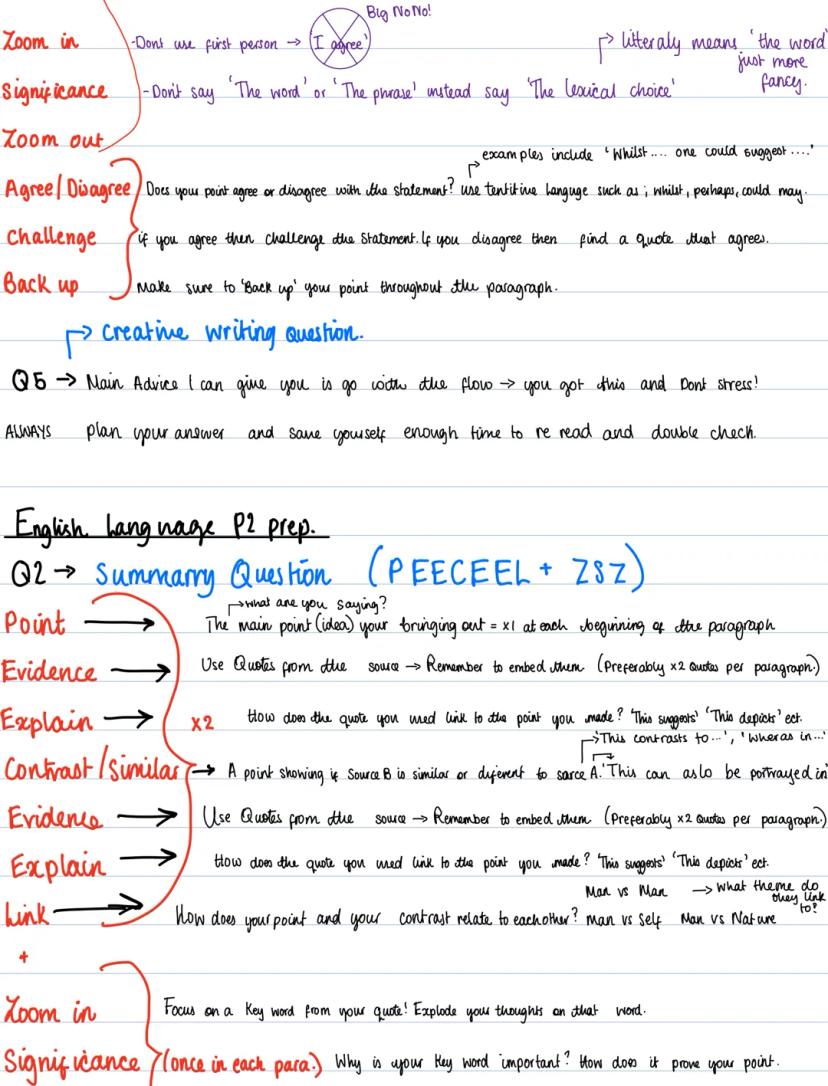 Big No No!
Zoom in -Dont use first person → 'I agree' → litteraly means 'the word'
just more
fancy.
Significance -Don't say 'The word' or 'The phrase' instead say 'The lexical choice'
Zoom out
→ examples include 'Whilst.... one could suggest ....'
Agree/Disagree Does your point agree or disagree with the statement? use tentitive languge such as ; whilst, perhaps, could may.
Challenge if you agree then challenge the Statement. If you disagree then find a quote that agrees.
Back up Make sure to 'Back up' your point throughout the paragraph.
→ creative writing question.
Q5 → Main Advice I can give you is go with the flow → you got this and Dont stress!
ALWAYS plan your answer and save yourself enough time to re read and double check.
English Language P2 prep.
Q2 → Summarry Question (PEECEEL + ZSZ)
→ what are you saying?
Point → The main point (idea) your bringing out = x1 at each beginning of the paragraph
Evidence → Use Quotes from the source → Remember to embed them (Preferably x2 Quotes per paragraph.)
Explain → x2 How does the quote you used link to the point you made? 'This suggests' 'This depicts' ect.
→ 'This contrasts to...', 'Wheras in...'
Contrast/Similar → A point showing if Source B is similar or diferent to sorce A. 'This can aslo be portrayed in'
Evidence → Use Quotes from the source → Remember to embed them (Preferably x2 Quotes per paragraph.)
Explain → How does the quote you used link to the point you made? 'This suggests' 'This depicts' ect.
Man vs Man → What theme do
they link
to?
Link → How does your point and your contrast relate to eachother? Man vs Self Man vs Nature
+
Zoom in Focus on a Key word from your quote! Explode your thoughts on that word.
Significance (once in each para.) Why is your Key word important? How does it prove your point.